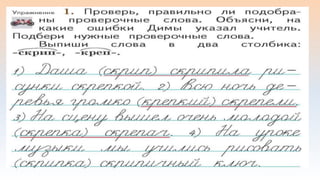 Упражнение 1. Проверь, правильно ли подобра-
ны проверочные слова. Объясни, на
какие ошибки Димы указал учитель.
Подбери нужные проверочные слова.
Выпиши слова в два столбика:
-скрип-, -креп-.
1) Даша (скрип) скрипила ри-
сунки скрепкой. 2) Всю ночь де-
ревья громко (крепкий) скрепели.
3) На сцену вышел очень молодой
(скрепка) скрепач. 4) На уроке
музыки мы учились рисовать
(скрипка) скрипичный ключ.